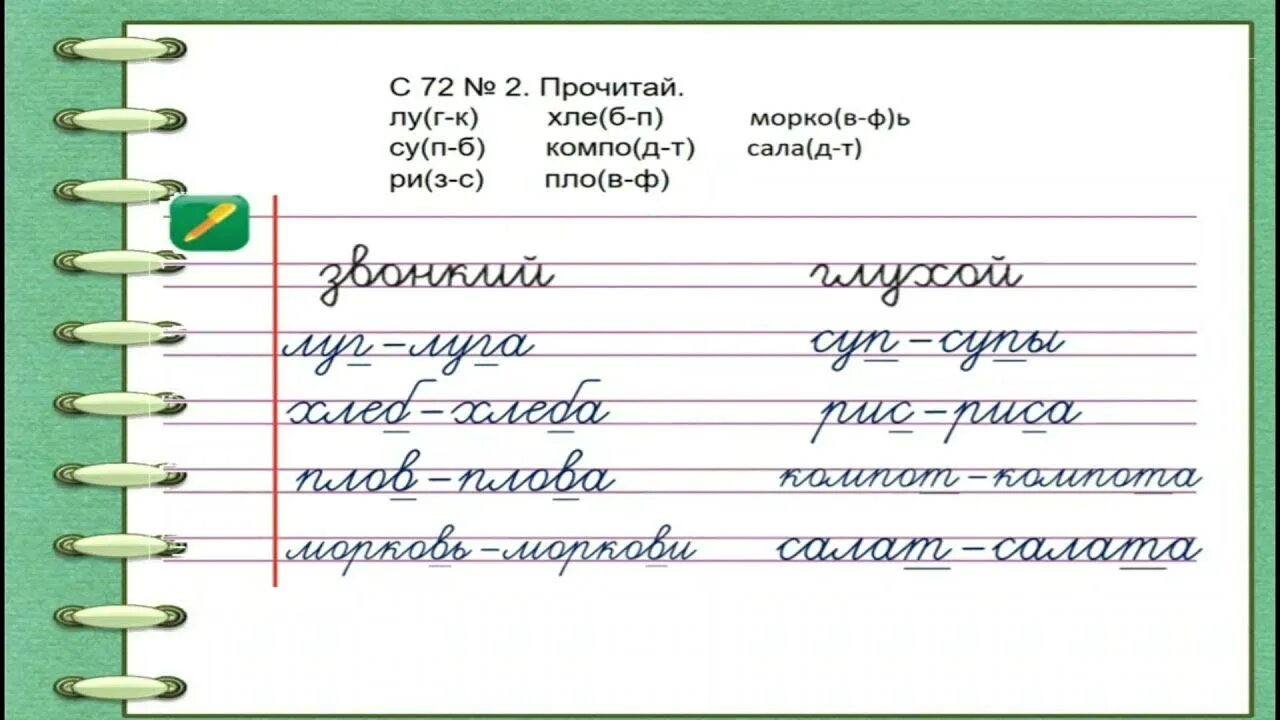 С 72 № 2. Прочитай.
лу(г-к) хле(б-п) морко(в-ф)ь
су(п-б) компо(д-т) сала(д-т)
ри(з-с) пло(в-ф)
звонкий глухой
луг – луга суп – супы
хлеб – хлеба рис – риса
плов – плова компот – компота
морковь – моркови салат – салата